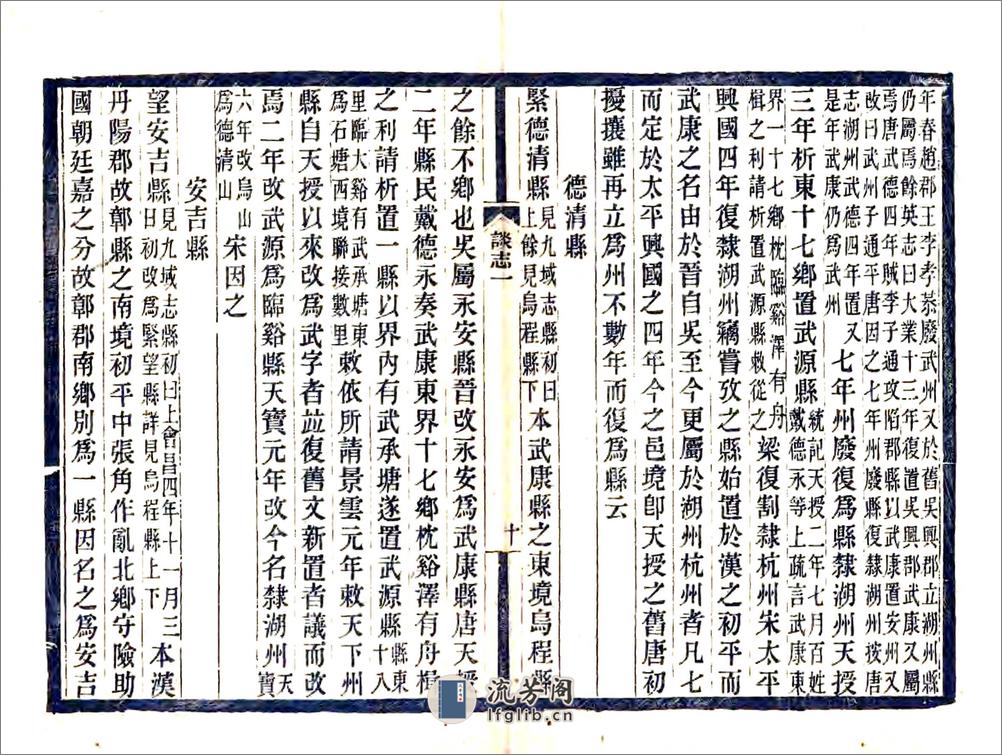 年春趙郡王李孝恭廢武州又於舊吳興郡立湖州縣
仍屬焉餘英志曰大業十三年復置吳興郡武康又屬
焉唐武德四年賊李子通攻陷郡縣以武康置安州又
改曰武州子通平唐因之七年州廢縣復隸湖州按唐
志湖州武德四年置又
是年武康仍爲武州
七年州廢復爲縣隸湖州天授
三年析東十七鄉置武源縣
統記天授二年七月百姓
戴德永等上疏言武康東
界一十七鄉枕臨谿澤有丹
楫之利請析置武源縣敕從之
梁復割隸杭州宋太平
興國四年復隸湖州竊嘗攷之縣始置於漢之初平而
武康之名由於晉自吳至今更屬於湖州杭州者凡七
而定於太平興國之四年今之邑境卽天授之舊唐初
擾攘雖再立爲州不數年而復爲縣云
德清縣
緊德清縣
見九域志縣初曰
上餘見烏程縣下
本武康縣之東境烏程縣
談志一
十
之餘不鄉也吳屬永安縣晉改永安爲武康縣唐天授
二年縣民戴德永奏武康東界十七鄉枕谿澤有舟楫
之利請析置一縣以界內有武承塘遂置武源縣
縣東
十八
里臨大谿有武承塘東
爲石塘西境聯接數里
敕依所請景雲元年敕天下州
縣自天授以來改爲武字者竝復舊文新置者議而改
焉二年改武源爲臨谿縣天寶元年改今名隸湖州
天
寶
六年改烏山
爲德清山
宋因之
安吉縣
望安吉縣
見九域志縣初曰上會昌四年十一月三
日初改爲緊望縣詳見烏程縣上下
本漢
丹陽郡故鄣縣之南境初平中張角作亂北鄉守險助
國朝廷嘉之分故鄣郡南鄉別爲一縣因名之爲安吉
流芳閣
lfglib.cn